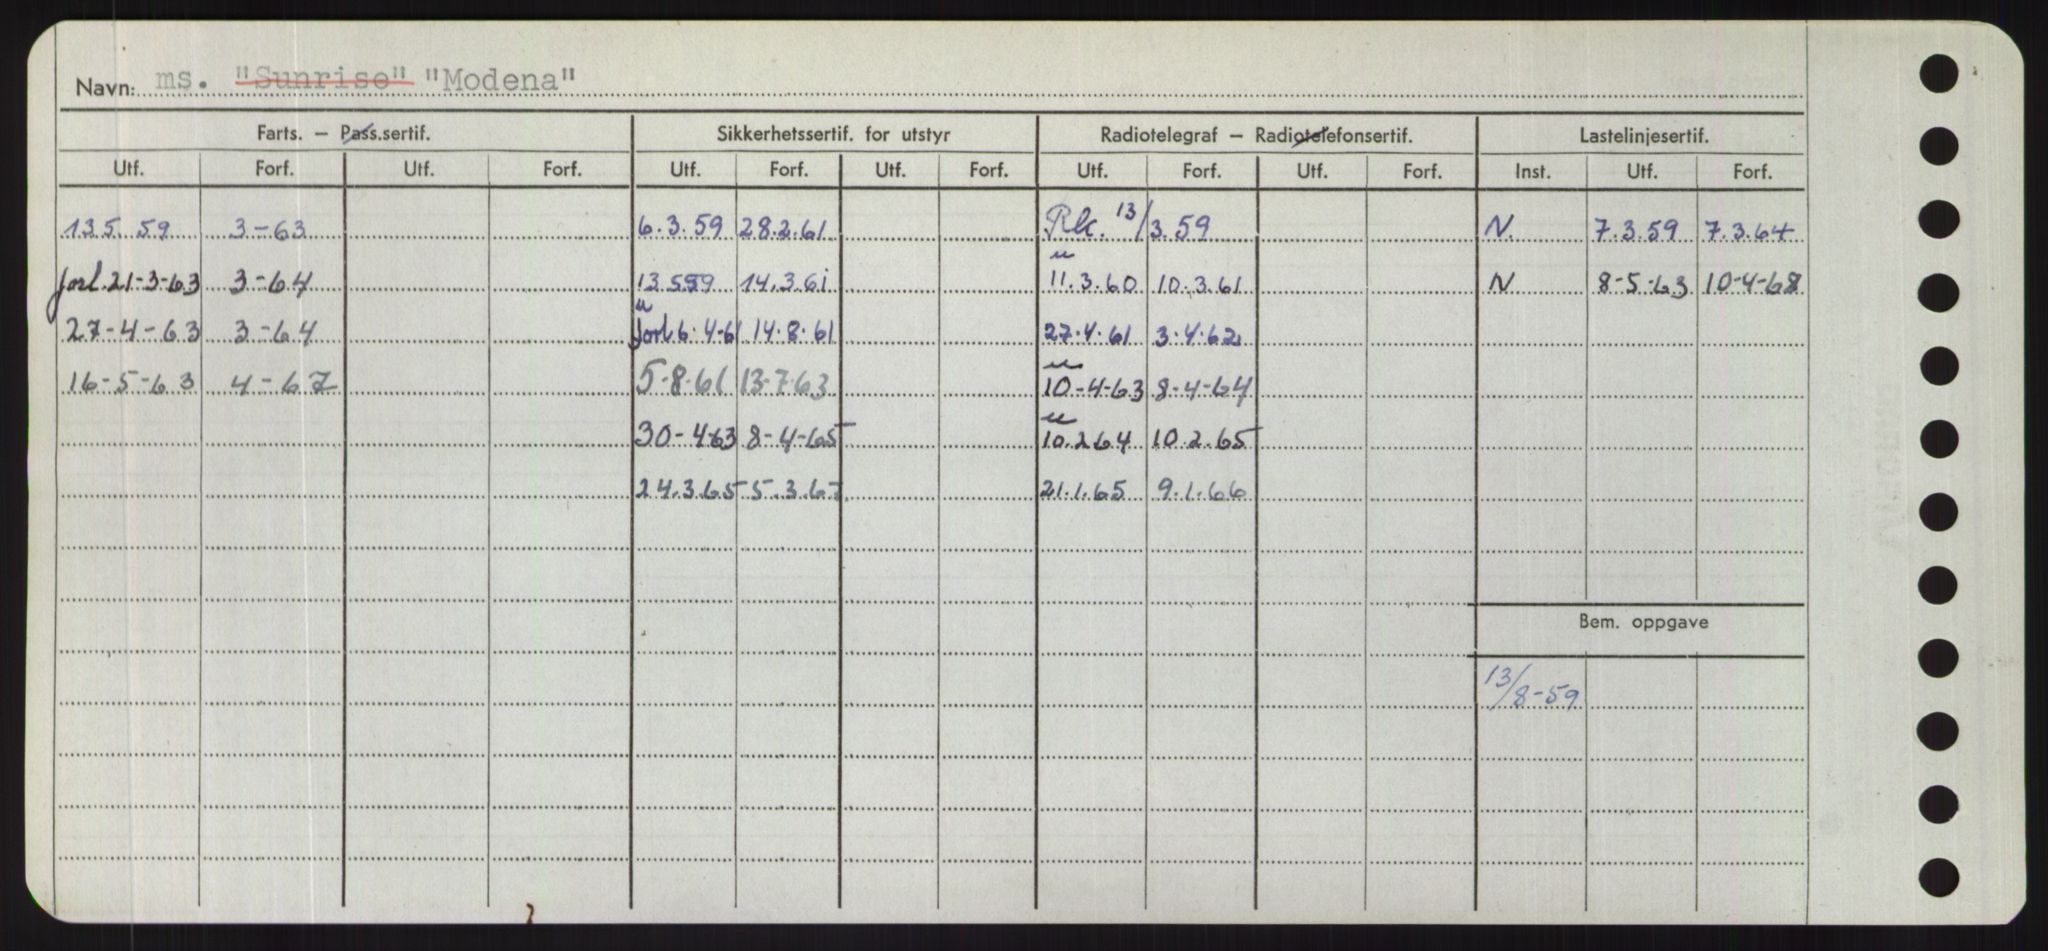 Navn: ms. "Sunrise" "Modena"
Farts. — Pass.sertif. Sikkerhetssertif. for utstyr Radiotelegraf — Radiotelefonsertif. Lastelinjesertif.
Utf. Forf. Utf. Forf. Utf. Forf. Utf. Forf. Utf. Forf. Utf. Forf. Inst. Utf. Forf.
13.5.59 3-63 6.3.59 28.2.61 13/3.59 N. 7.3.59 7.3.64
forl.21-3-63 3-64 13.5.59 14.3.61 11.3.60 10.3.61 N 8-5-63 10-4-68
27-4-63 3-64 forl 6.4-61 14.8.61 27.4.61 3.4.62
16-5-63 4-67 5.8.61 13-7.63 10-4-63 8-4-64
30-4-63 8-4-65 10.2.64 10.2.65
24.3.65 5.3.67 21.1.65 9.1.66
Bem. oppgave
13/8-59